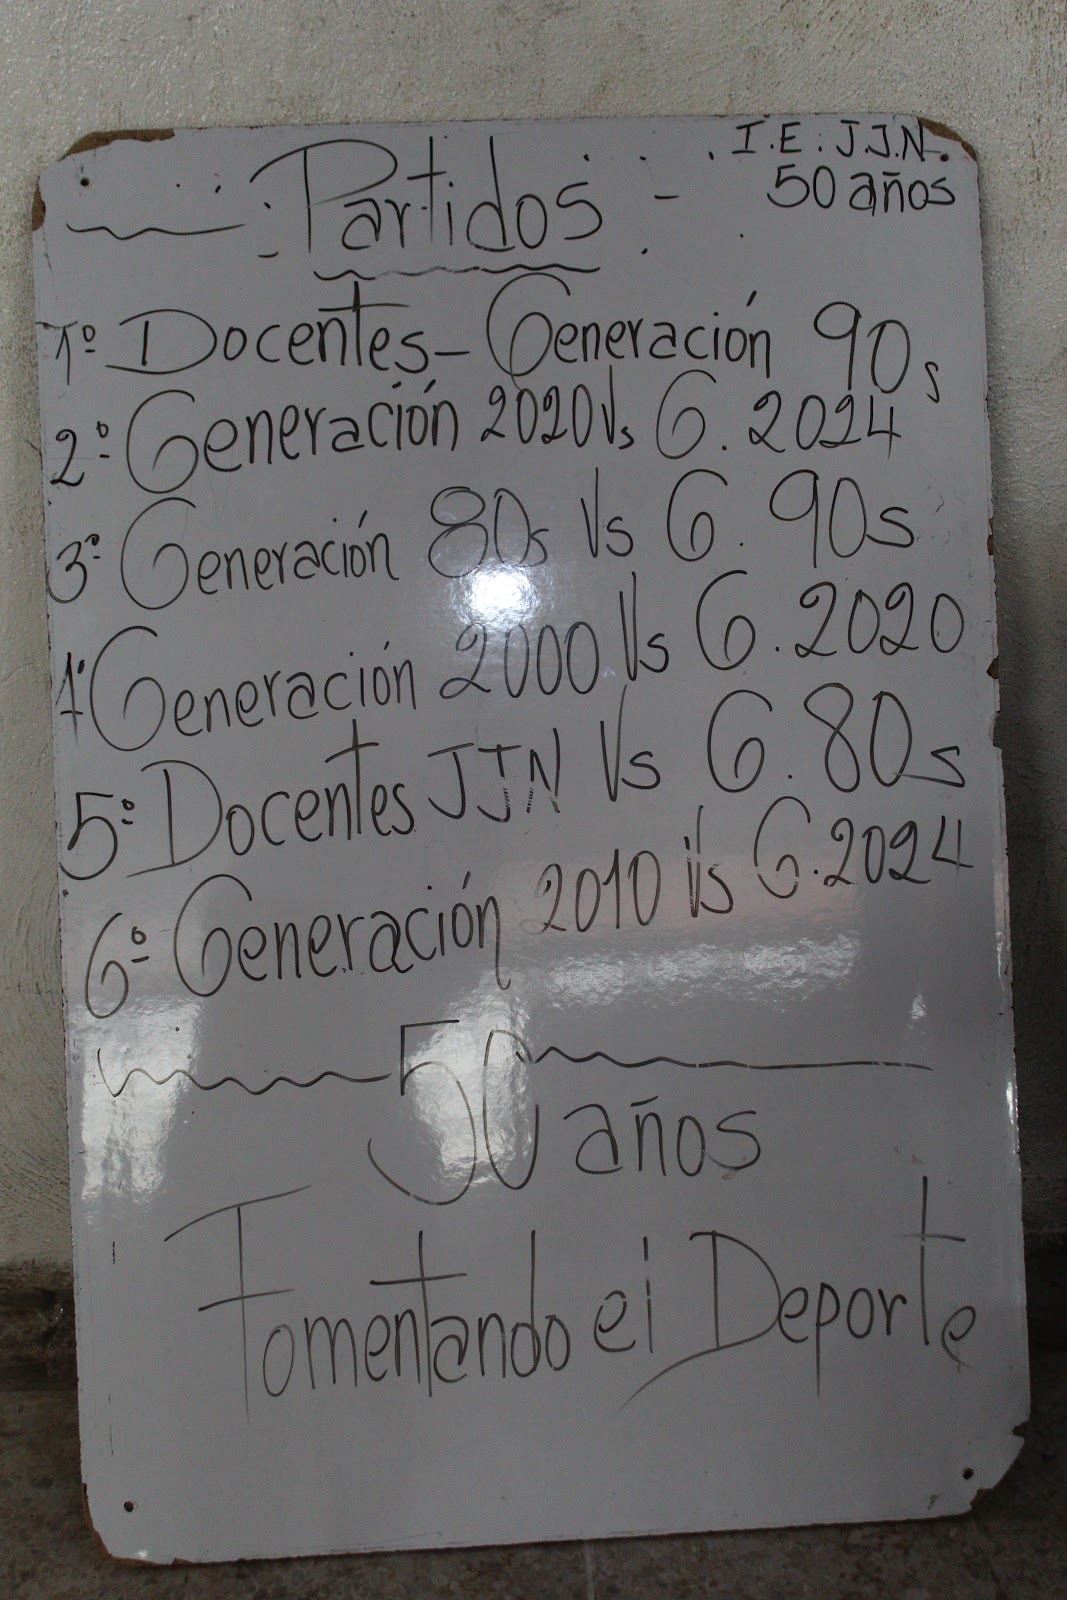 I.E. J.J.N.
50 años
Partidos
1º Docentes - Generación 90s
2º Generación 2020 Vs G. 2024
3º Generación 80s Vs G. 90s
4º Generación 2000 Vs G. 2020
5º Docentes JJN Vs G. 80s
6º Generación 2010 Vs G. 2024
50 años
Fomentando el Deporte